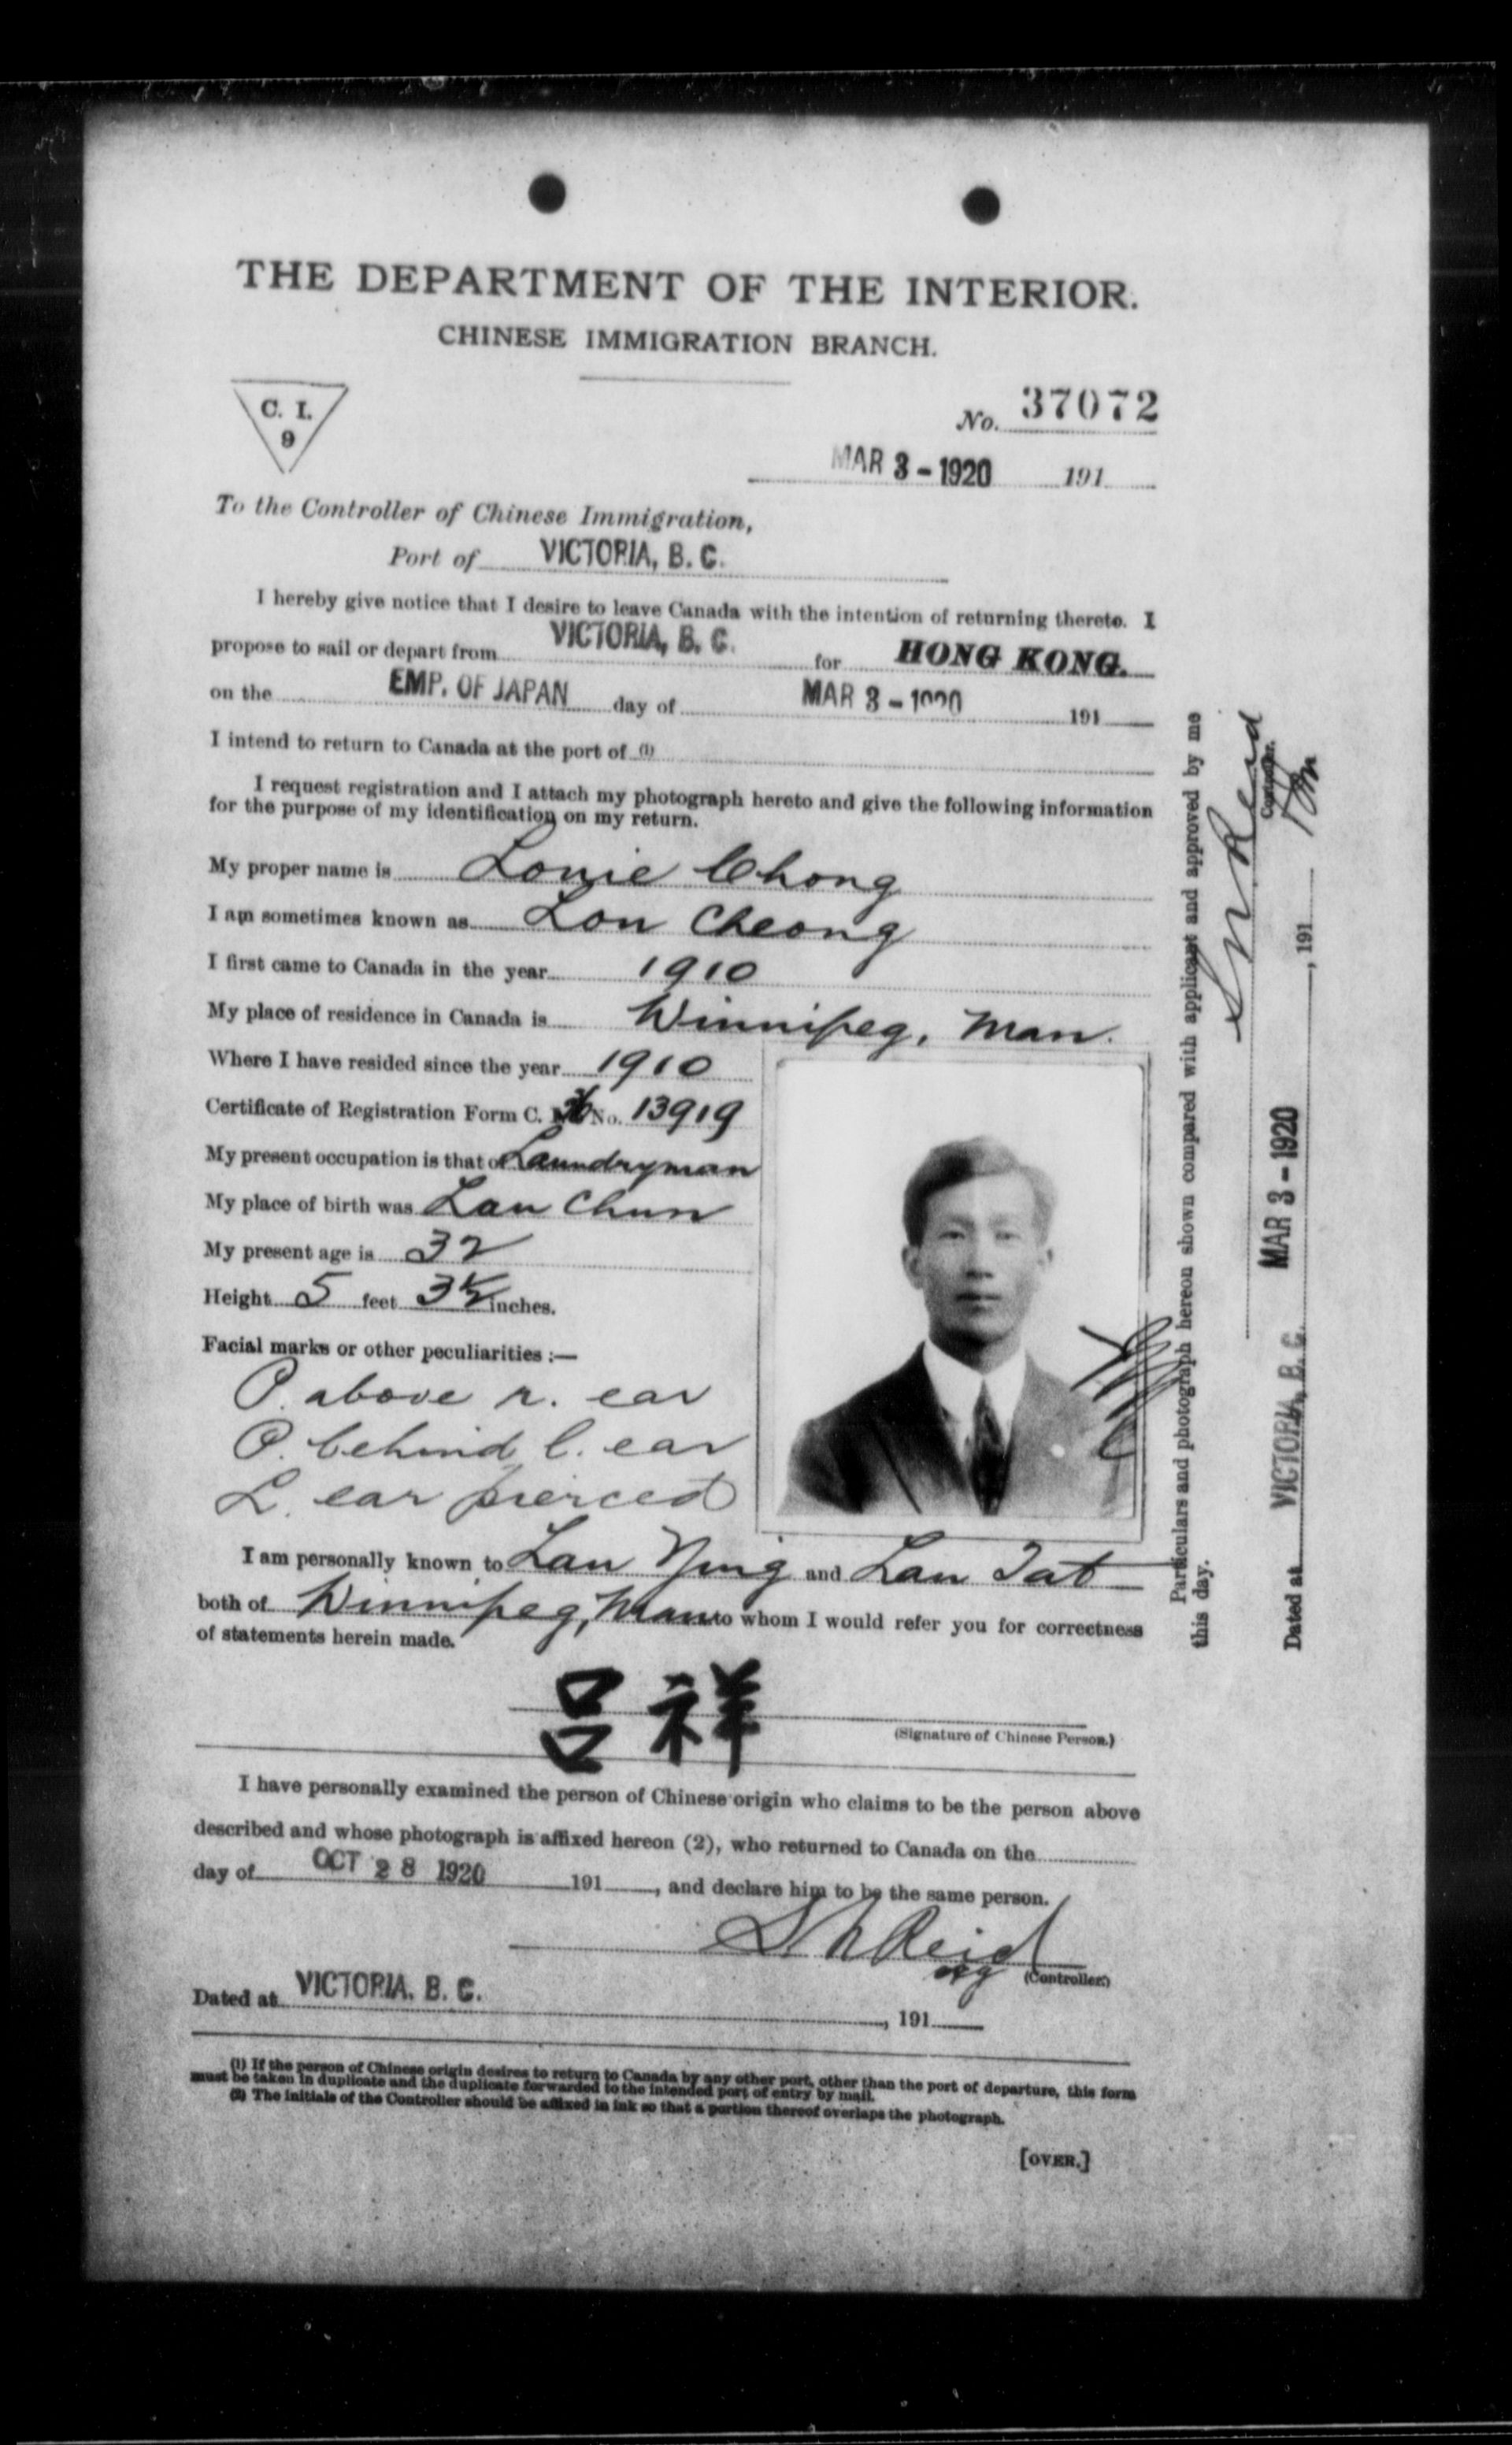 THE DEPARTMENT OF THE INTERIOR.
CHINESE IMMIGRATION BRANCH.
C. I.
9
No. 37072
MAR 3 - 1920 191
To the Controller of Chinese Immigration,
Port of VICTORIA, B. C.
I hereby give notice that I desire to leave Canada with the intention of returning thereto. I
propose to sail or depart from VICTORIA, B. C. for HONG KONG.
on the EMP. OF JAPAN day of MAR 3 - 1920 191
I intend to return to Canada at the port of (1)
I request registration and I attach my photograph hereto and give the following information
for the purpose of my identification on my return.
My proper name is Louie Chong
I am sometimes known as Lou Cheong
I first came to Canada in the year 1910
My place of residence in Canada is Winnipeg, Man.
Where I have resided since the year 1910
Certificate of Registration Form C. No. 13919
My present occupation is that of Laundryman
My place of birth was Lau Chun
My present age is 32
Height 5 feet 3½ inches.
Facial marks or other peculiarities :—
P. above r. ear
P. behind l. ear
L. ear pierced
I am personally known to Lau and Lau Tat
both of Winnipeg, Man to whom I would refer you for correctness
of statements herein made.
呂祥
(Signature of Chinese Person.)
I have personally examined the person of Chinese origin who claims to be the person above
described and whose photograph is affixed hereon (2), who returned to Canada on the
day of OCT 28 1920 191 , and declare him to be the same person.
Reid
(Controller.)
Dated at VICTORIA, B. C. , 191
(1) If the person of Chinese origin desires to return to Canada by any other port, other than the port of departure, this form
must be taken in duplicate and the duplicate forwarded to the intended port of entry by mail.
(2) The initials of the Controller should be affixed in ink so that a portion thereof overlaps the photograph.
[OVER.]
Particulars and photograph hereon shown compared with applicant and approved by me
this day.
Reid
Controller.
Dated at VICTORIA, B. C. MAR 3 - 1920 , 191